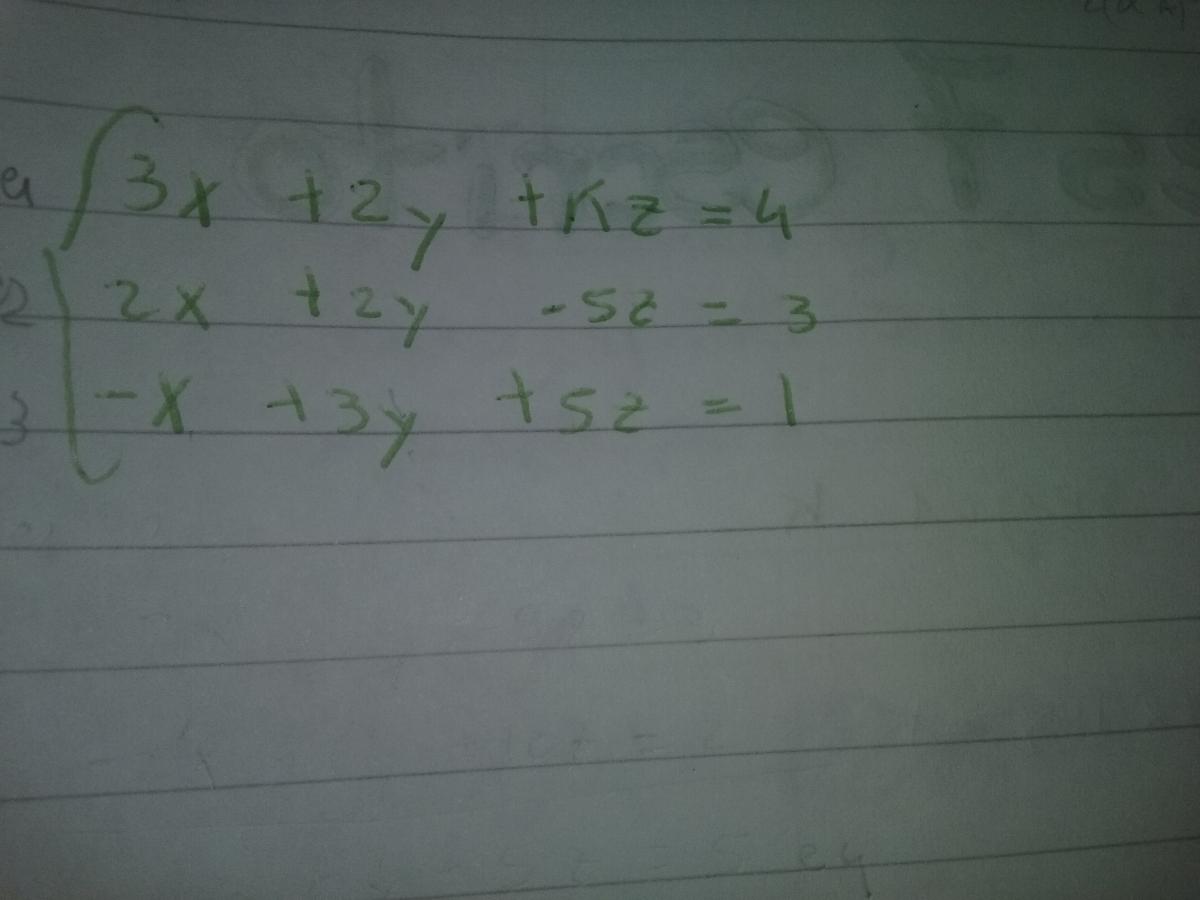 3x +2y +Kz = 4
2x +2y -5z = 3
-x +3y +5z = 1